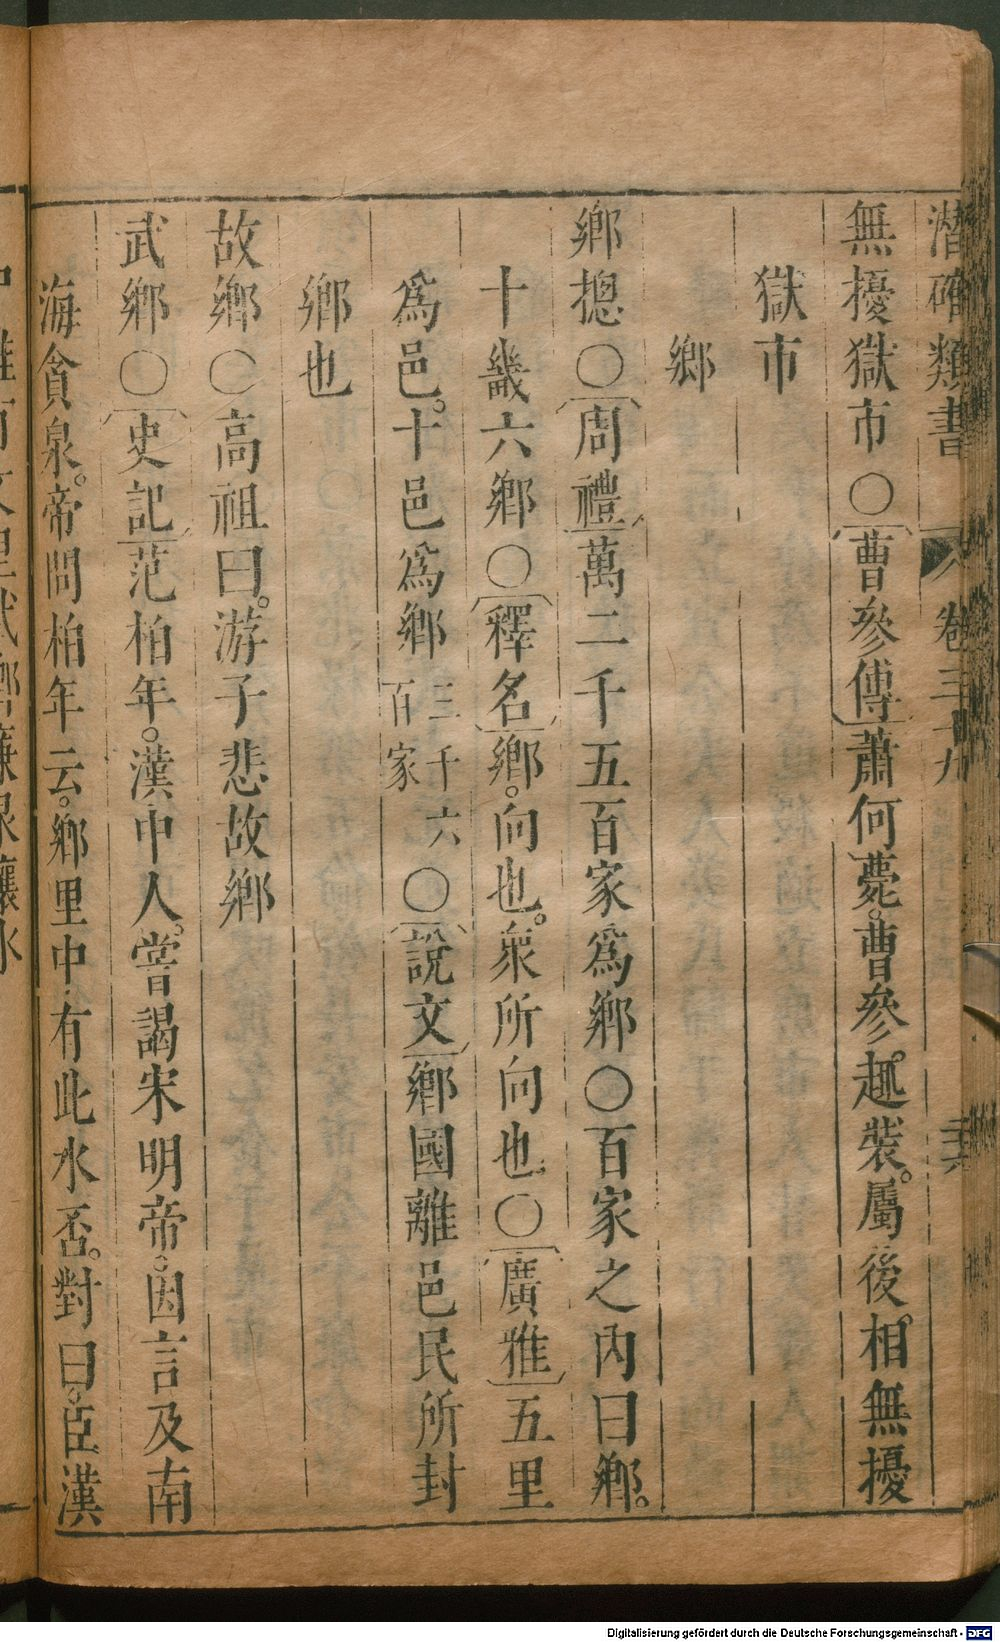 潛確類書 卷三十九
無擾獄市〇曹參傳蕭何薨。曹參趣裝。屬後相無擾
獄市
鄉
鄉摠〇周禮萬二千五百家為鄉〇百家之內曰鄉。
十畿六鄉〇釋名鄉。向也。衆所向也〇廣雅五里
為邑。十邑為鄉三千六百家〇說文鄉國離邑民所封
鄉也
故鄉〇高祖曰。游子悲故鄉
武鄉〇史記范柏年。漢中人。嘗謁宋明帝。因言及南
海貪泉。帝問柏年云。鄉里中有此水否。對曰。臣漢
Digitalisierung gefördert durch die Deutsche Forschungsgemeinschaft - DFG